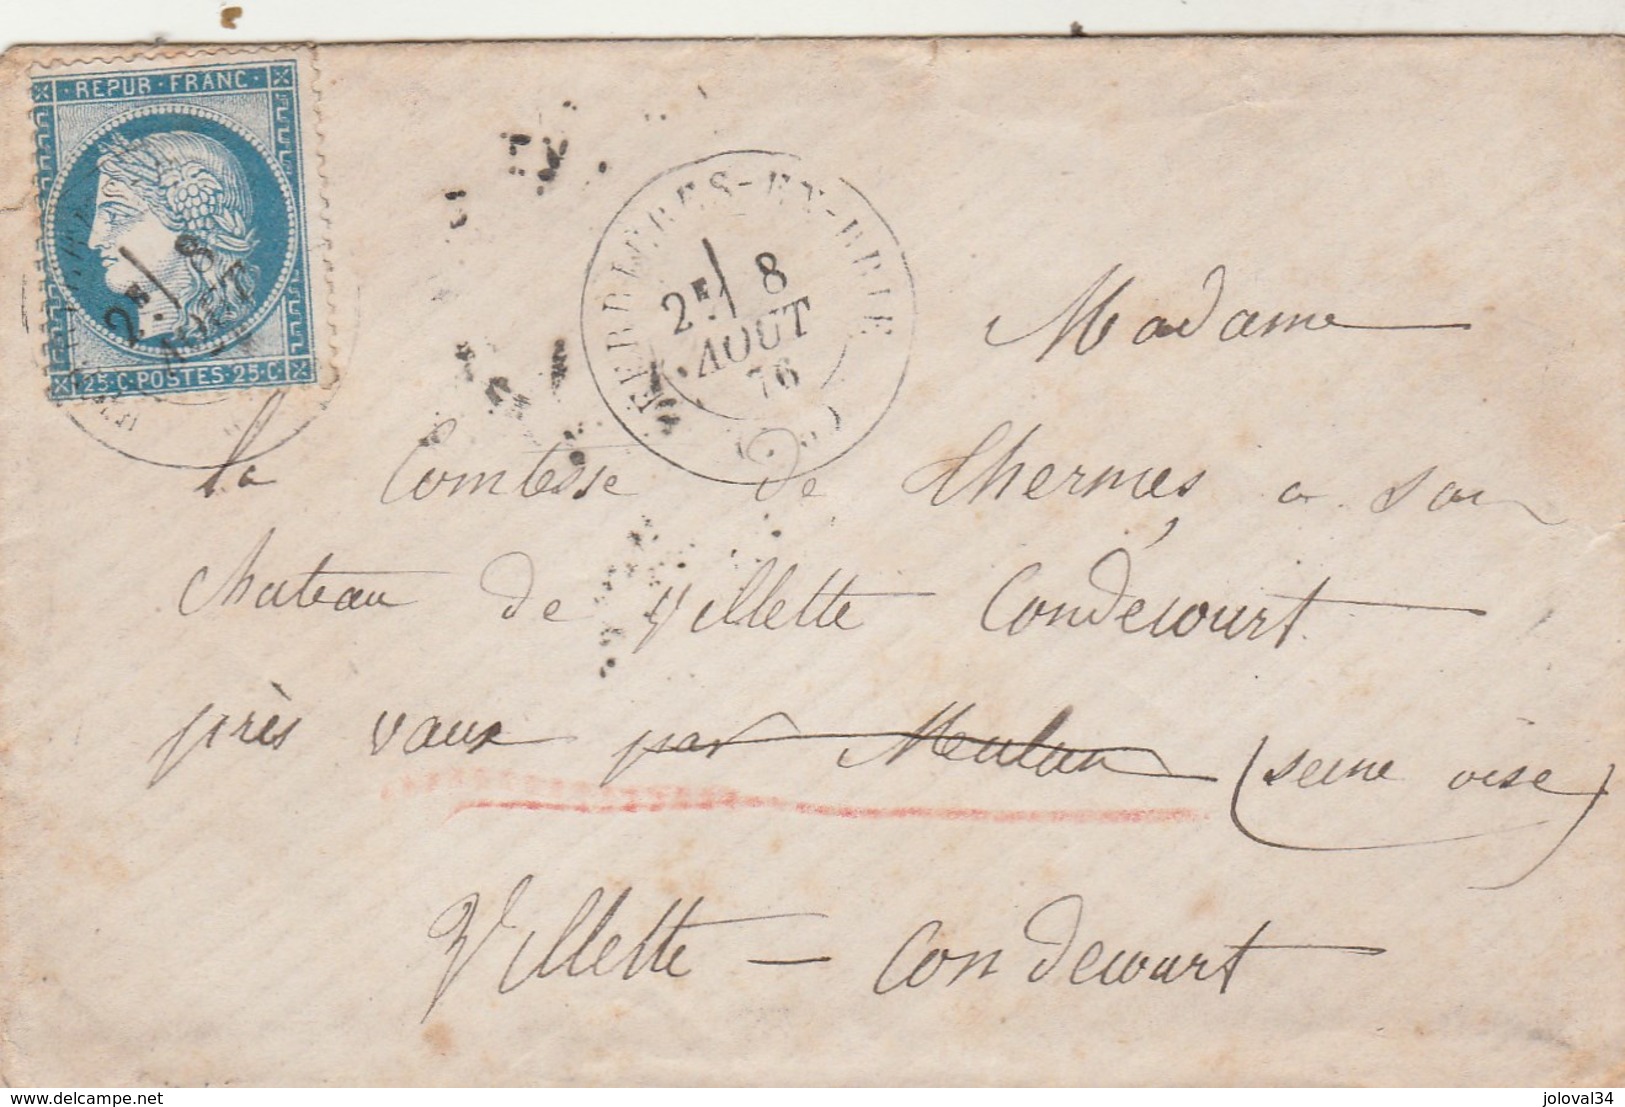 REPUB·FRANC·
25·C·POSTES·25·C
2E 8
AOUT
FERRIERES-EN-BRIE
2E 8
AOUT
76
Madame
la Comtesse de Thermes a son
chateau de Villette Condécourt
près vaux par Meulan (seine oise)
Villette — Condecourt
www.delcampe.net
joloval34